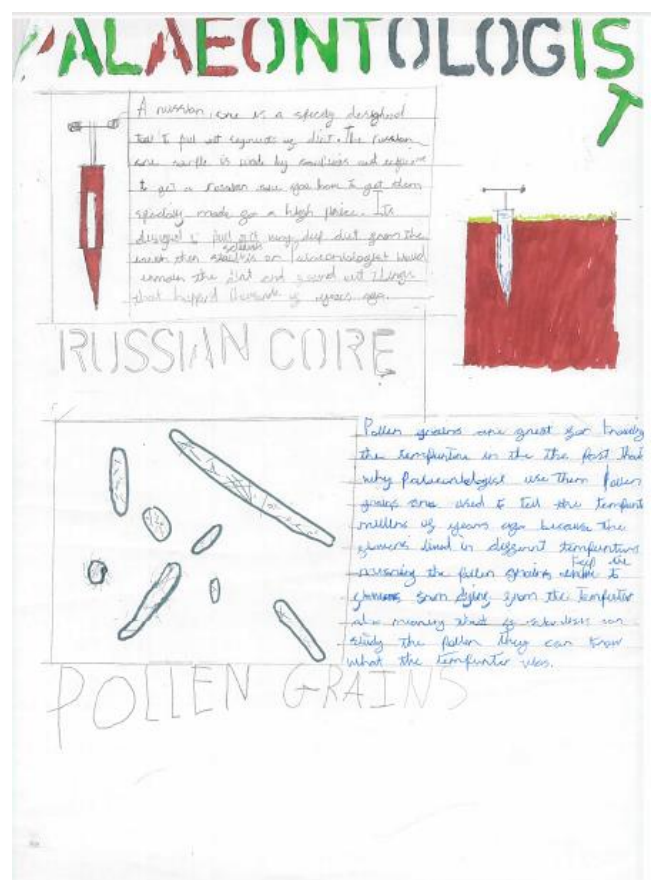 PALAEONTOLOGIST
A russian core is a specaly designed
tool to pull out segments of dirt. The russian
core sample is made by and
to get a russian core you have to get them
specialy made for a high price. Its
designed to pull out very deep dirt from the
earth then scients or Palaeontologist would
the dirt and found out things
that happend thousands of years ago.
RUSSIAN CORE
Pollen grains are great for knowing
the tempurture in the the past that
why Palaeontologist use them Pollen
grains are used to tell the tempurt
millens of years ago because the
flowers lived in different tempurtures
meaning the pollen grains to
keep the
flowers from dying from the tempurter
also meaning that if can
study the pollen they can know
what the tempurter was.
POLLEN GRAINS